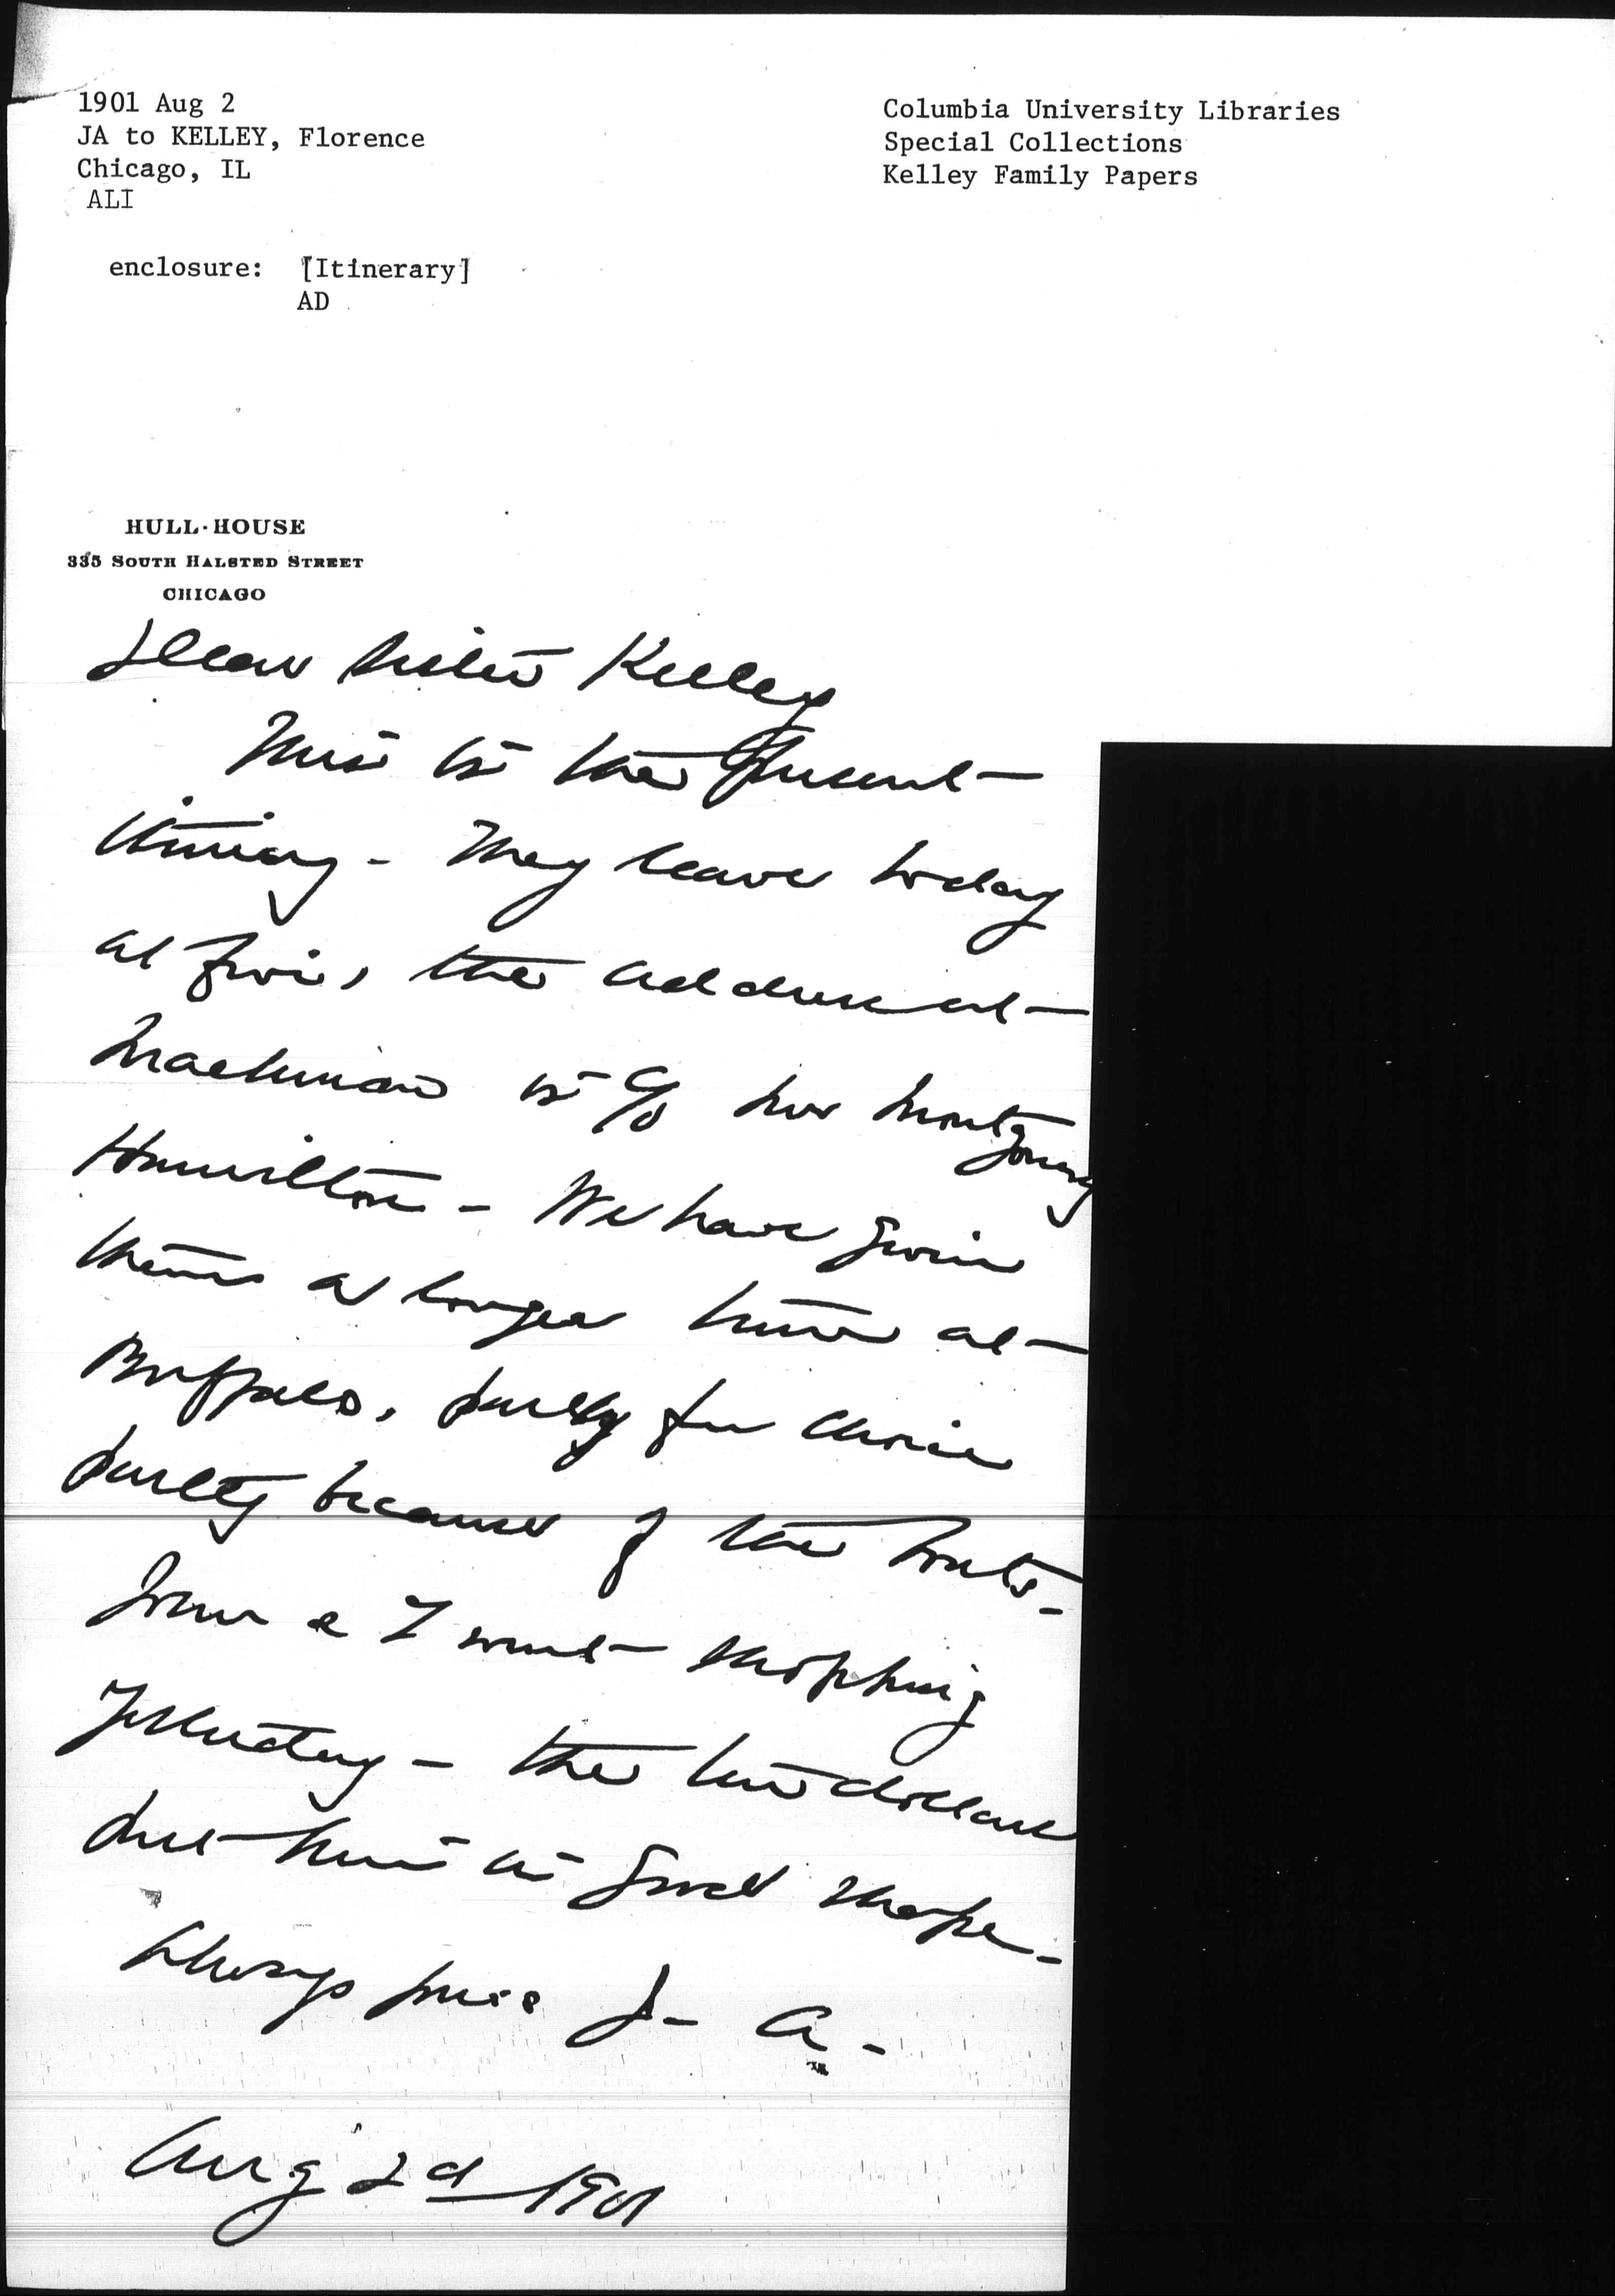 1901 Aug 2
JA to KELLEY, Florence
Chicago, IL
ALI
enclosure: [Itinerary]
AD
Columbia University Libraries
Special Collections
Kelley Family Papers
HULL-HOUSE
335 SOUTH HALSTED STREET
CHICAGO
Dear Sister Kelley
This is the present
itinery - They leave today
at five, the address at
Mackinaw is c/o Mrs Montgomery
Hamilton - We have given
them a longer time at
Buffalo, partly for choice
partly because of the boats -
& I went shopping
yesterday - the two dollars
put him in good shape -
Always yours J- A -
Aug 2d 1901